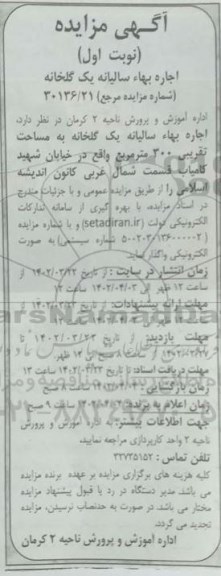 آگهی مزایده
(نوبت اول)
اجاره بهاء سالیانه یک گلخانه
(شماره مزایده مرجع) ۳۰۱۳۶/۲۱
اداره آموزش و پرورش ناحیه ۲ کرمان در نظر دارد،
اجاره بهاء سالیانه یک گلخانه به مساحت
تقریبی ۳۰۰ مترمربع واقع در خیابان شهید
کامیاب قسمت شمال غربی کانون اندیشه
اسلامی را از طریق مزایده عمومی و با جزئیات مندرج
در اسناد مزایده، با بهره گیری از سامانه تدارکات
الکترونیکی دولت (setadiran.ir) و با شماره مزایده
شماره سیستمی) به صورت
الکترونیکی واگذار نماید.
زمان انتشار در سایت: از تاریخ
از ساعت ۱۲ ظهر الی ساعت ۱۳
مهلت ارائه پیشنهادات: از تاریخ
مهلت بازدید: از تاریخ تا
از ساعت ۸ صبح الی ۱۲ ظهر
مهلت دریافت اسناد: تا تاریخ ساعت ۱۳
زمان بازگشایی: صبح
زمان اعلام به برنده: ساعت ۹ صبح
جهت اطلاعات بیشتر: به اداره آموزش و پرورش
ناحیه ۲ واحد کارپردازی مراجعه نمایید.
تلفن تماس: ۳۲۲۳۵۱۵۲
کلیه هزینه های برگزاری مزایده بر عهده برنده مزایده
می باشد. مدیر دستگاه در رد یا قبول پیشنهاد مزایده
مختار می باشد. در صورت به حدنصاب نرسیدن، مزایده
تجدید می گردد.
اداره آموزش و پرورش ناحیه ۲ کرمان